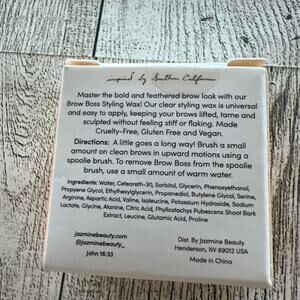 inspired by Southern California
Master the bold and feathered brow look with our
Brow Boss Styling Wax! Our clear styling wax is universal
and easy to apply, keeping your brows lifted, tame and
sculpted without feeling stiff or flaking. Made
Cruelty-Free, Gluten Free and Vegan.
Directions: A little goes a long way! Brush a small
amount on clean brows in upward motions using a
spoolie brush. To remove Brow Boss from the spoolie
brush, use a small amount of warm water.
Ingredients: Water, Ceteareth-30, Sorbitol, Glycerin, Phenoxyethanol,
Propylene Glycol, Ethylhexylglycerin, Propanediol, Butylene Glycol, Serine,
Arginine, Aspartic Acid, Valine, Isoleucine, Potassium Hydroxide, Sodium
Lactate, Glycine, Alanine, Citric Acid, Phyllostachys Pubescens Shoot Bark
Extract, Leucine, Glutamic Acid, Proline
jazminebeauty.com
@jazminebeauty_
John 16:33
Dist. By Jazmine Beauty
Henderson, NV 89012 USA
Made in China